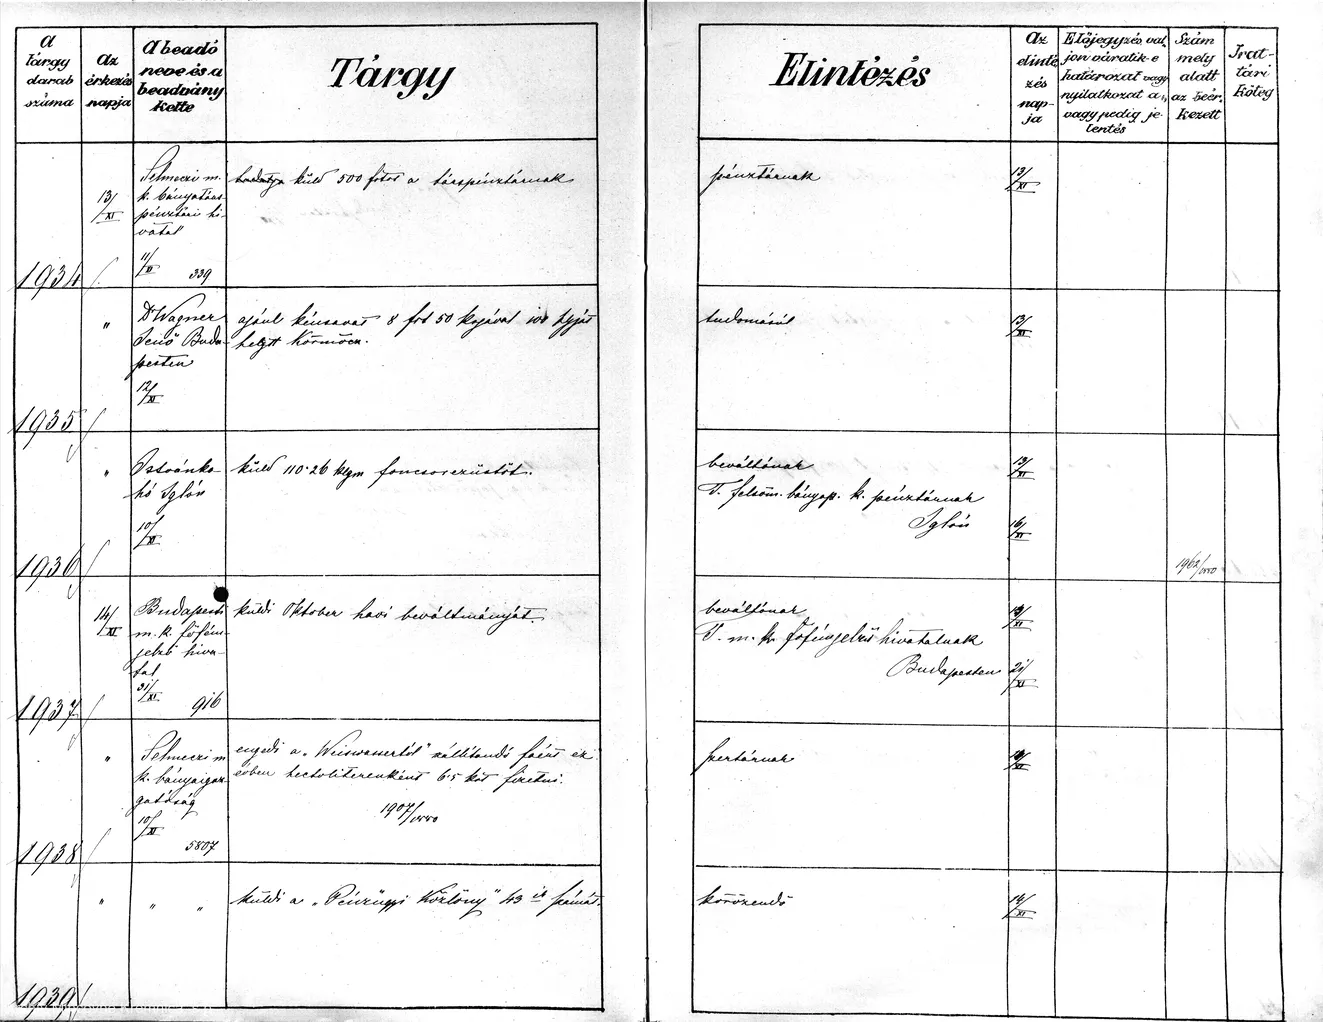 A tárgy darab száma
Az érkezés napja
A beadó neve és a beadvány kelte
Tárgy
Elintézés
Az elintézés napja
Előjegyzés, valjon váratik-e határozat vagy nyilatkozat a, vagy pedig jelentés
Szám mely alatt az beérkezett
Irattári köteg
1934
13/XI
Selmeczi m.
k. bányatárs
pénztári hi-
vatal
11/XI 339
küld 500 frtot a társpénztárnak
pénztárnak
13/XI
1935
"
Dr Wagner
Jenő Buda-
pesten
12/XI
ajánl kénsavat 8 frt 50 krjával 100
helyt Körmöcz.
tudomásul
13/XI
1936
"
Istvánko-
hó Iglón
10/XI
küld 110·26 klgm foncsorezüstöt.
beváltónak
13/XI
T. felsőm. bányap. k. pénztárnak
Iglón
16/XI
1962/
1937
14/XI
Budapesti
m. k. főfém-
jelző hiva-
tal
31/XI
916
küldi Oktober havi beváltmányát.
beváltónak
13/XI
T. m. kir Főfémjelző hivatalnak
Budapesten
21/XI
1938
"
Selmeczi m
k. bányaigaz-
gatóság
10/XI
5807
engedi a „Weiswassertól" szállítandó faért ez
évben hectoliterenként 65 krt fizetni.
1907/
szertárnak
1939
"
" "
küldi a „Pénzügyi Közlöny" 43 ik számát.
körözendő
14/XI